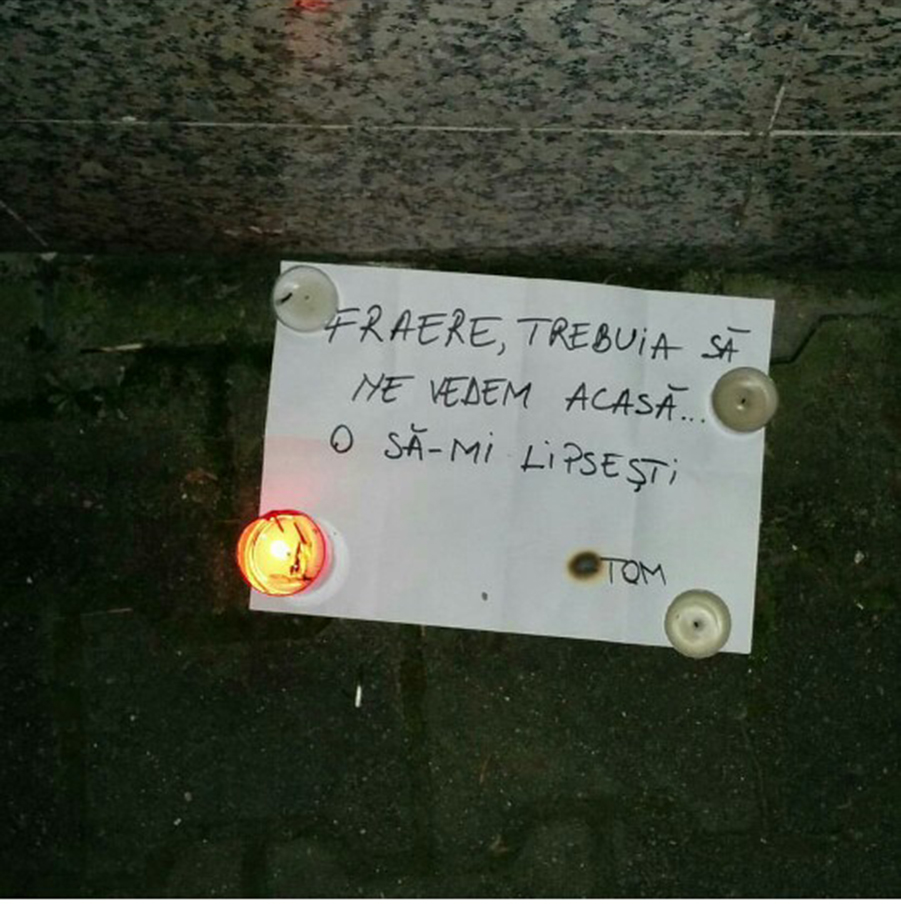 FRAERE, TREBUiA SĂ
NE VEDEM ACASĂ...
O SĂ-Mi LiPSEŞTi
TOM